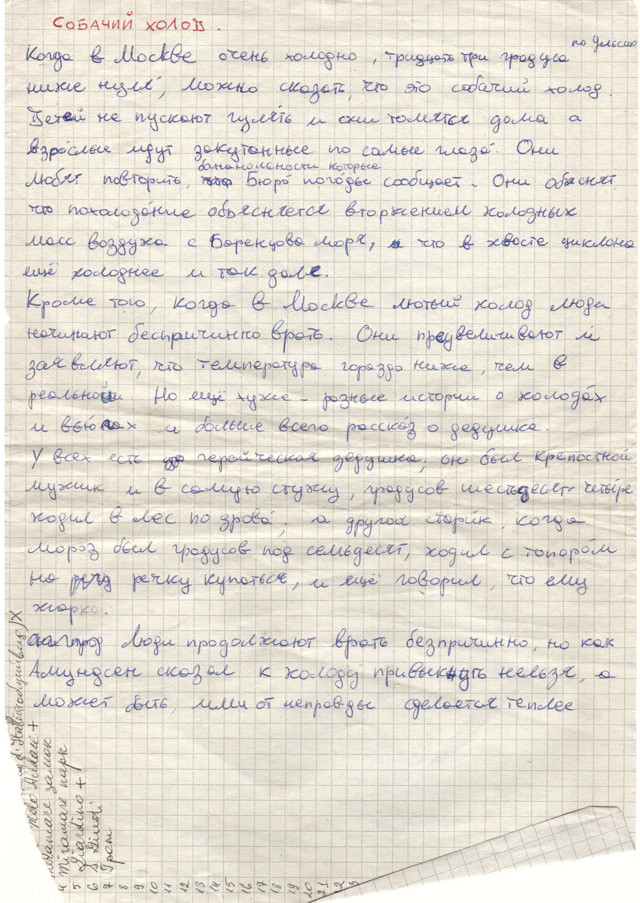 СОБАЧИЙ ХОЛОД.
по Ульсию
Когда в Москве очень холодно, тридцать три градуса
ниже нуля, можно сказать, что это собачий холод.
Детей не пускают гулять и они томятся дома а
взрослые идут закутанные по самые глаза. Они
банальности которые
любят повторить, Бюро погоды сообщает. Они объяснят
что похолодание объясняется вторжением холодных
масс воздуха с Баренцова моря, и что в хвосте циклона
ещё холоднее и так дале.
Кроме того, когда в Москве лютый холод люди
начинают беспричинно врать. Они преувеличивают и
заявляют, что температура гораздо ниже, чем в
реальности. Но ещё хуже – разные истории о холодах
и вьюгах и больше всего рассказ о дедушка.
У всех есть геройческая дедушка; он был крепостной
мужик и в самую стужу, градусов шестьдесят четыре
ходил в лес по дрова; а другой старик, когда
мороз был градусов под семьдесят, ходил с топором
на речку купаться, и ещё говорил, что ему
жарко.
Люди продолжают врать безпричинно, но как
Амундсен сказал к холоду привыкнуть нельзя, а
может быть, ими от неправды сделается теплее
замок
4 Miramare парк
5 Giardino +
6 s. Giusti
7
8
9
10
11
12
13
14
15
16
17
18
19
20
21
2
3